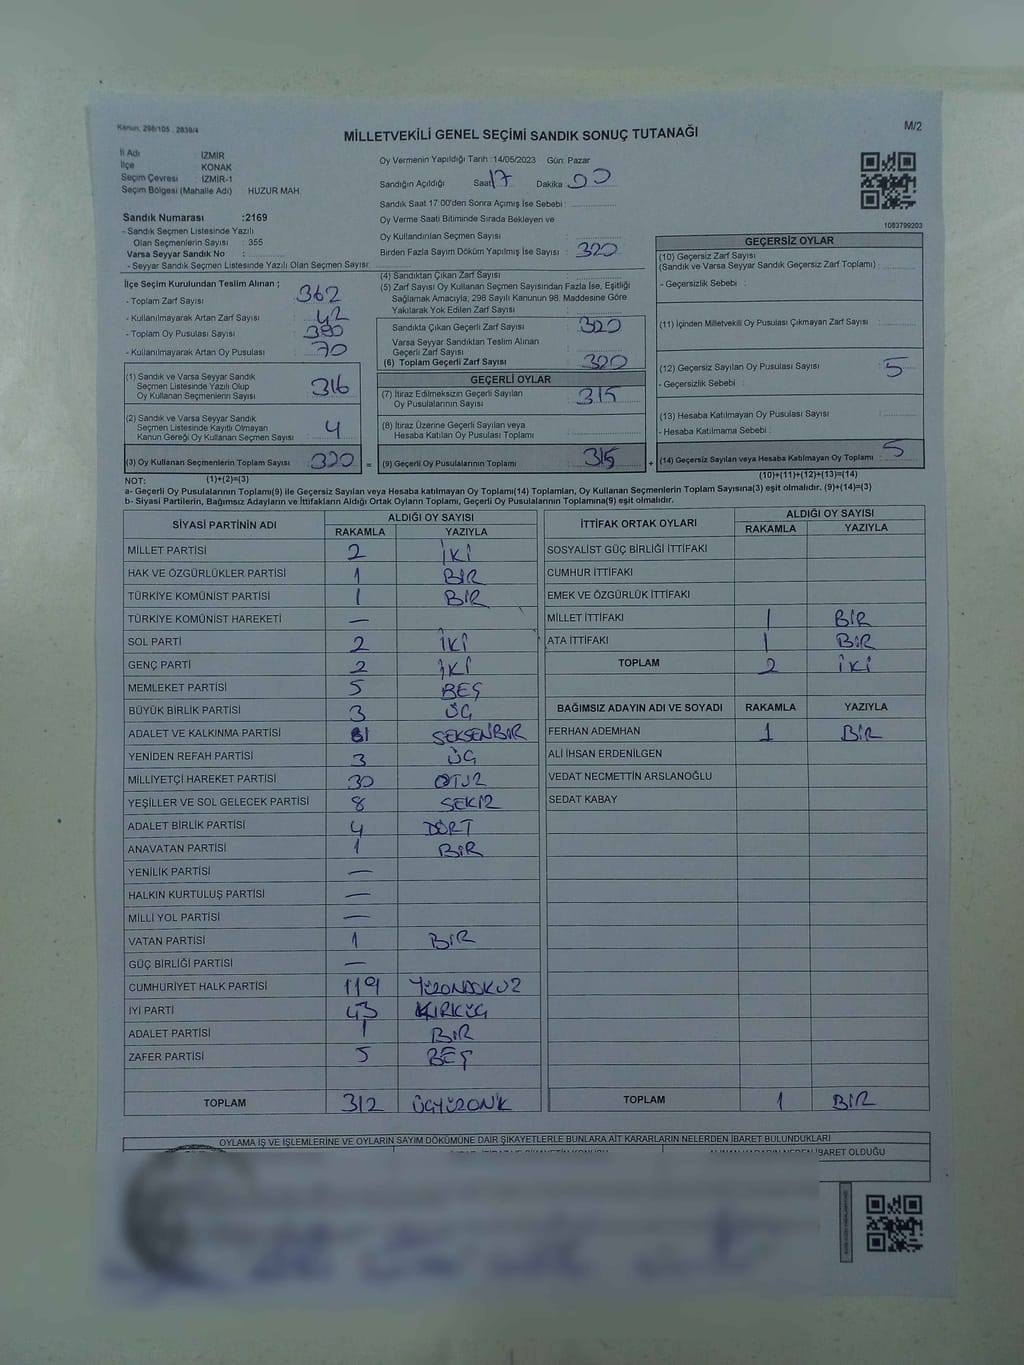 Kanun: 298/105 , 2839/4
M/2
MİLLETVEKİLİ GENEL SEÇİMİ SANDIK SONUÇ TUTANAĞI
İl Adı İZMİR
İlçe KONAK
Seçim Çevresi : İZMİR-1
Seçim Bölgesi (Mahalle Adı) HUZUR MAH.
Oy Vermenin Yapıldığı Tarih :14/05/2023 Gün: Pazar
Sandığın Açıldığı Saat 17 Dakika 00
Sandık Saat 17:00'den Sonra Açımış İse Sebebi :
Oy Verme Saati Bitiminde Sırada Bekleyen ve
Oy Kullandırılan Seçmen Sayısı :
Birden Fazla Sayım Döküm Yapılmış İse Sayısı : 320
1083799203
Sandık Numarası :2169
- Sandık Seçmen Listesinde Yazılı
Olan Seçmenlerin Sayısı : 355
Varsa Seyyar Sandık No :
- Seyyar Sandık Seçmen Listesinde Yazılı Olan Seçmen Sayısı:
İlçe Seçim Kurulundan Teslim Alınan ;
- Toplam Zarf Sayısı : 362
- Kullanılmayarak Artan Zarf Sayısı : 42
- Toplam Oy Pusulası Sayısı : 390
- Kullanılmayarak Artan Oy Pusulası : 70
(1) Sandık ve Varsa Seyyar Sandık
Seçmen Listesinde Yazılı Olup
Oy Kullanan Seçmenlerin Sayısı : 316
(2) Sandık ve Varsa Seyyar Sandık
Seçmen Listesinde Kayıtlı Olmayan
Kanun Gereği Oy Kullanan Seçmen Sayısı : 4
(3) Oy Kullanan Seçmenlerin Toplam Sayısı : 320 =
(1)+(2)=(3)
(4) Sandıktan Çıkan Zarf Sayısı :
(5) Zarf Sayısı Oy Kullanan Seçmen Sayısından Fazla İse, Eşitliği
Sağlamak Amacıyla, 298 Sayılı Kanunun 98. Maddesine Göre
Yakılarak Yok Edilen Zarf Sayısı :
Sandıkta Çıkan Geçerli Zarf Sayısı : 320
Varsa Seyyar Sandıktan Teslim Alınan
Geçerli Zarf Sayısı :
(6) Toplam Geçerli Zarf Sayısı : 320
GEÇERLİ OYLAR
(7) İtiraz Edilmeksizin Geçerli Sayılan
Oy Pusulalarının Sayısı : 315
(8) İtiraz Üzerine Geçerli Sayılan veya
Hesaba Katılan Oy Pusulası Toplamı :
(9) Geçerli Oy Pusulalarının Toplamı : 315 +
GEÇERSİZ OYLAR
(10) Geçersiz Zarf Sayısı
(Sandık ve Varsa Seyyar Sandık Geçersiz Zarf Toplamı) :
- Geçersizlik Sebebi :
(11) İçinden Milletvekili Oy Pusulası Çıkmayan Zarf Sayısı :
(12) Geçersiz Sayılan Oy Pusulası Sayısı : 5
- Geçersizlik Sebebi :
(13) Hesaba Katılmayan Oy Pusulası Sayısı :
- Hesaba Katılmama Sebebi :
(14) Geçersiz Sayılan veya Hesaba Katılmayan Oy Toplamı : 5
(10)+(11)+(12)+(13)=(14)
NOT:
a- Geçerli Oy Pusulalarının Toplamı(9) ile Geçersiz Sayılan veya Hesaba katılmayan Oy Toplamı(14) Toplamları, Oy Kullanan Seçmenlerin Toplam Sayısına(3) eşit olmalıdır. (9)+(14)=(3)
b- Siyasi Partilerin, Bağımsız Adayların ve İttifakların Aldığı Ortak Oyların Toplamı, Geçerli Oy Pusulalarının Toplamına(9) eşit olmalıdır.
SİYASİ PARTİNİN ADI ALDIĞI OY SAYISI
RAKAMLA YAZIYLA
MİLLET PARTİSİ 2 İKİ
HAK VE ÖZGÜRLÜKLER PARTİSİ 1 BİR
TÜRKİYE KOMÜNİST PARTİSİ 1 BİR
TÜRKİYE KOMÜNİST HAREKETİ —
SOL PARTİ 2 İKİ
GENÇ PARTİ 2 İKİ
MEMLEKET PARTİSİ 5 BEŞ
BÜYÜK BİRLİK PARTİSİ 3 ÜÇ
ADALET VE KALKINMA PARTİSİ 81 SEKSENBİR
YENİDEN REFAH PARTİSİ 3 ÜÇ
MİLLİYETÇİ HAREKET PARTİSİ 30 OTUZ
YEŞİLLER VE SOL GELECEK PARTİSİ 8 SEKİZ
ADALET BİRLİK PARTİSİ 4 DÖRT
ANAVATAN PARTİSİ 1 BİR
YENİLİK PARTİSİ —
HALKIN KURTULUŞ PARTİSİ —
MİLLİ YOL PARTİSİ —
VATAN PARTİSİ 1 BİR
GÜÇ BİRLİĞİ PARTİSİ —
CUMHURİYET HALK PARTİSİ 119 YÜZONDOKUZ
İYİ PARTİ 43 KIRKÜÇ
ADALET PARTİSİ 1 BİR
ZAFER PARTİSİ 5 BEŞ
TOPLAM 312 ÜÇYÜZONİK
İTTİFAK ORTAK OYLARI ALDIĞI OY SAYISI
RAKAMLA YAZIYLA
SOSYALİST GÜÇ BİRLİĞİ İTTİFAKI
CUMHUR İTTİFAKI
EMEK VE ÖZGÜRLÜK İTTİFAKI
MİLLET İTTİFAKI 1 BİR
ATA İTTİFAKI 1 BİR
TOPLAM 2 İKİ
BAĞIMSIZ ADAYIN ADI VE SOYADI RAKAMLA YAZIYLA
FERHAN ADEMHAN 1 BİR
ALİ İHSAN ERDENİLGEN
VEDAT NECMETTİN ARSLANOĞLU
SEDAT KABAY
TOPLAM 1 BİR
OYLAMA İŞ VE İŞLEMLERİNE VE OYLARIN SAYIM DÖKÜMÜNE DAİR ŞİKAYETLERLE BUNLARA AİT KARARLARIN NELERDEN İBARET BULUNDUKLARI
İBARET OLDUĞU